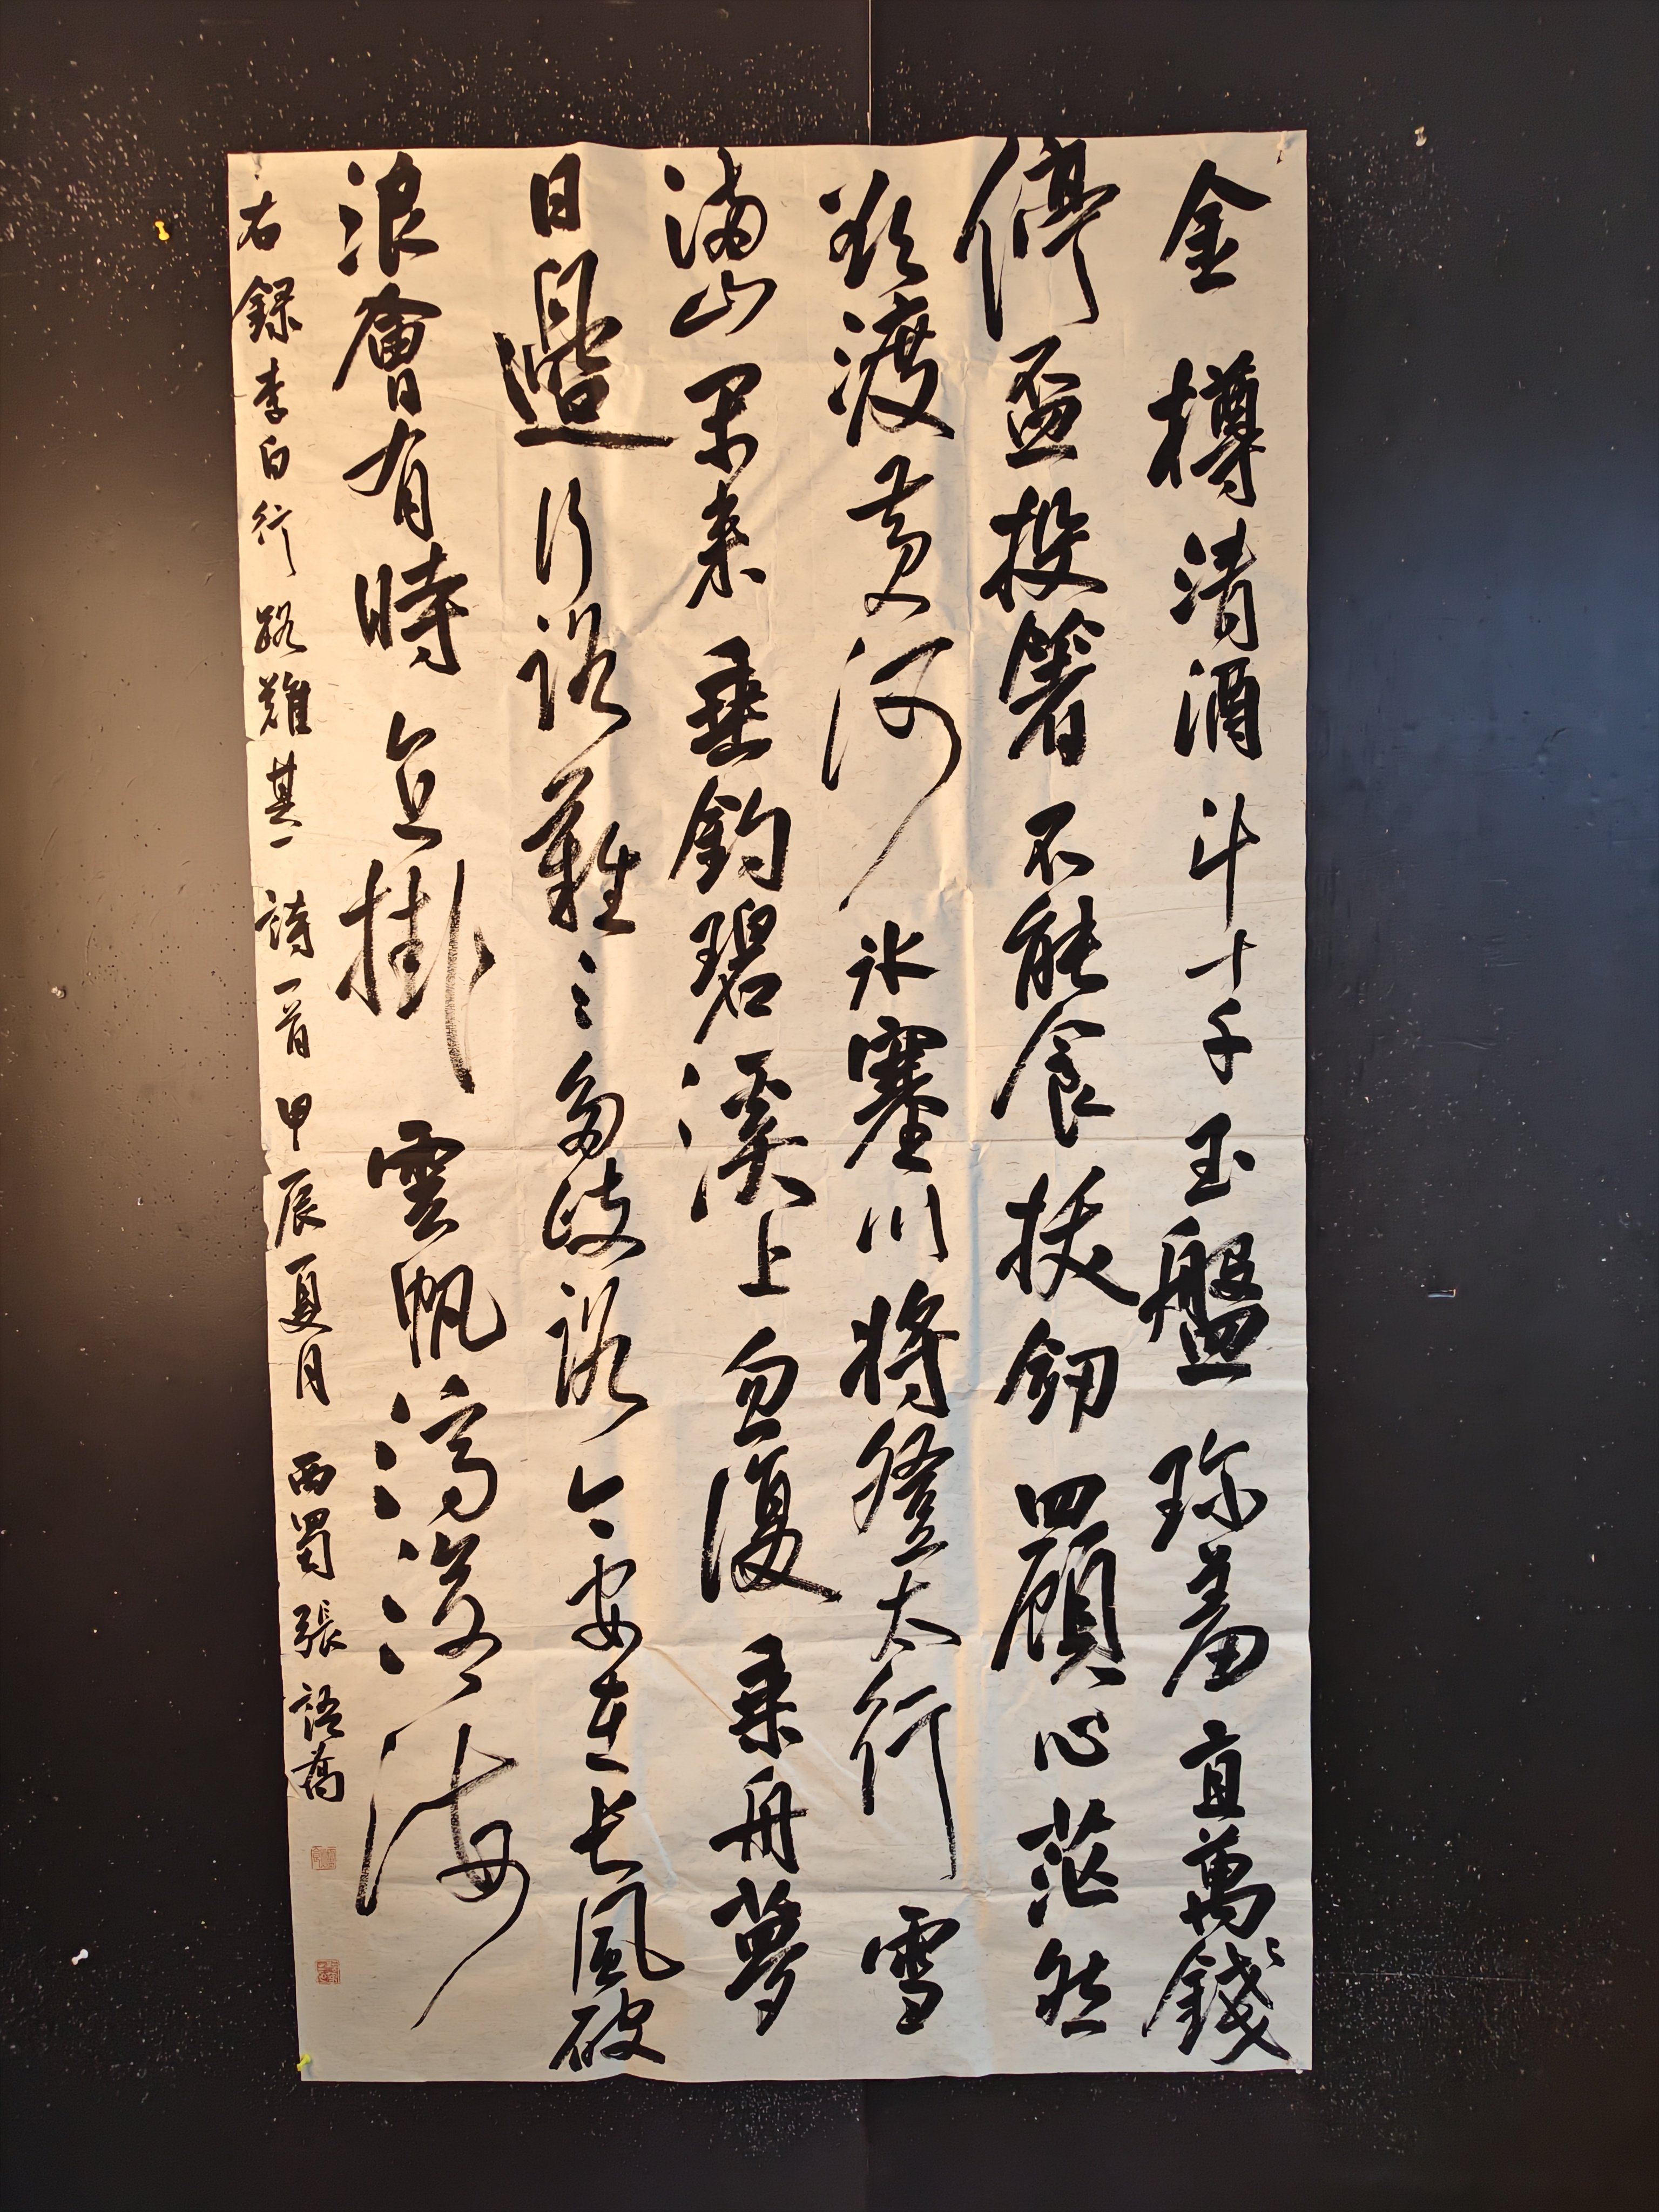 金樽清酒斗十千玉盤珎羞直萬錢
停盃投箸不能食拔釼四顧心茫然
欲渡黄河冰塞川将登太行雪
滿山閑来垂釣碧溪上忽復乘舟夢
日邊行路難〻〻多歧路今安在長風破
浪會有時直掛雲帆濟滄海
右録李白行路難其一詩一首甲辰夏月西蜀張語喬